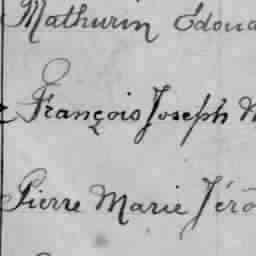 Mathurin Édoua
François Joseph
Pierre Marie Jérô